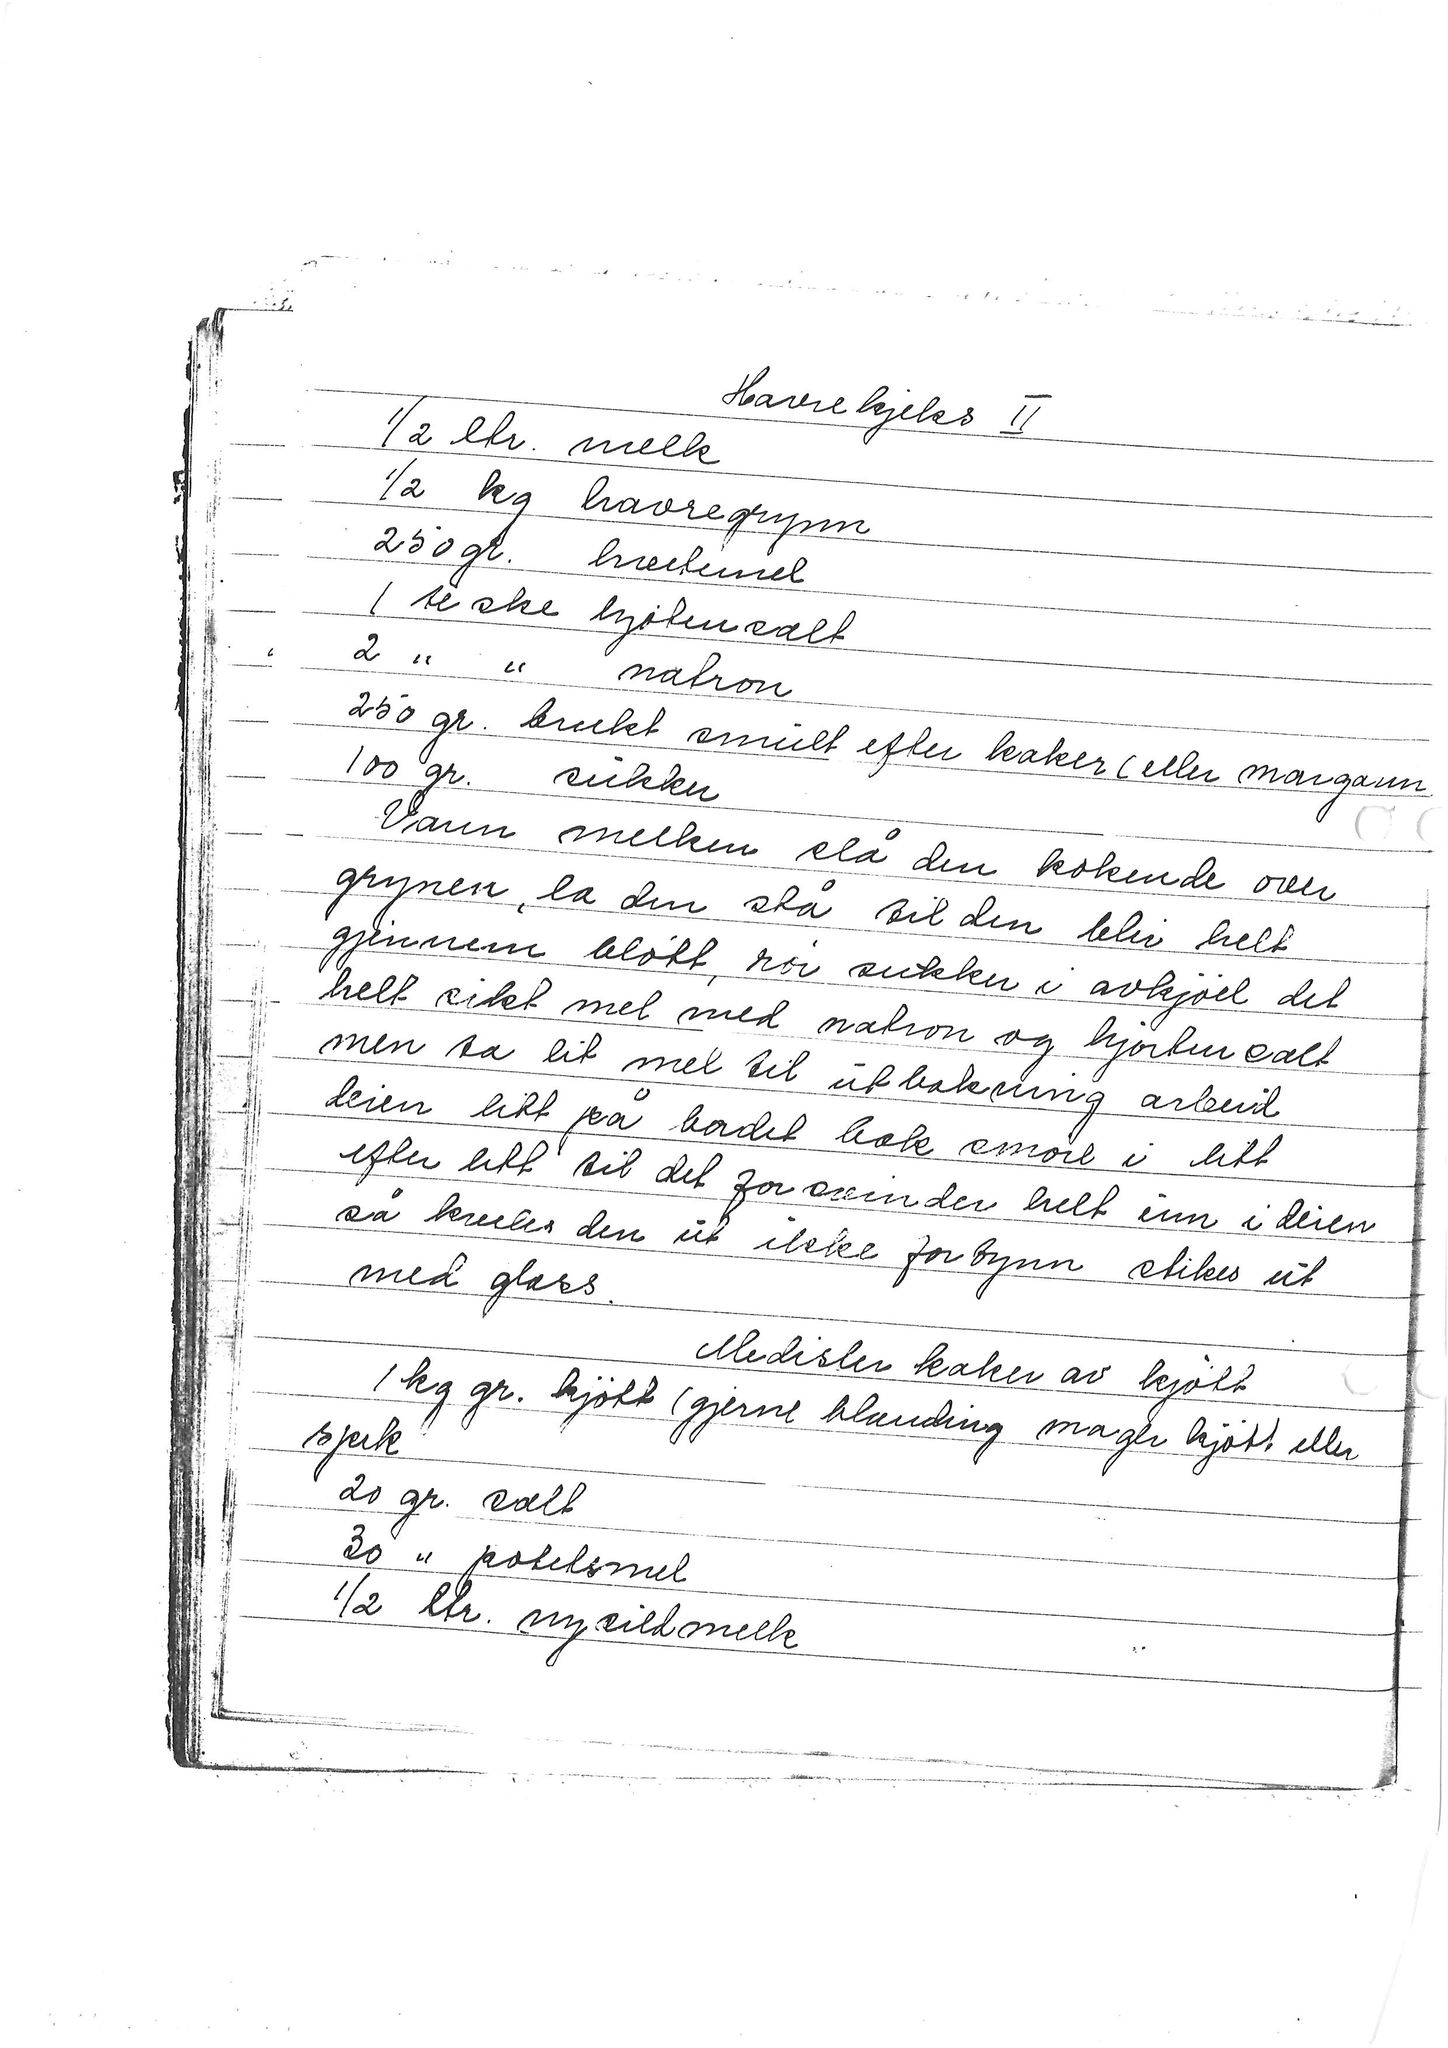 Havrekjeks II
1/2 ltr. melk
1/2 kg havregrynn
250 gr. hvetemel
1 te ske hjötensalt
2 " " natron
250 gr. brukt smult efter kaker (eller margarin
100 gr. sukker
Varm melken slå den kokende over
grynen, la den stå til den blir helt
gjennem blött, rör sukker i avkjöel det
helt sikt mel med natron og hjortensalt
men ta lit mel til utbakning arbeid
deien litt på bordet bak smöre i litt
efter litt til det forsvinder helt inn i deien
så kveles den ut ikke for tynn stikes ut
med glass.
Medister kaker av kjött
1 kg gr. kjött (gjerne blanding mager kjött eller
spek
20 gr. salt
30 " potetsmel
1/2 ltr. nysildmelk